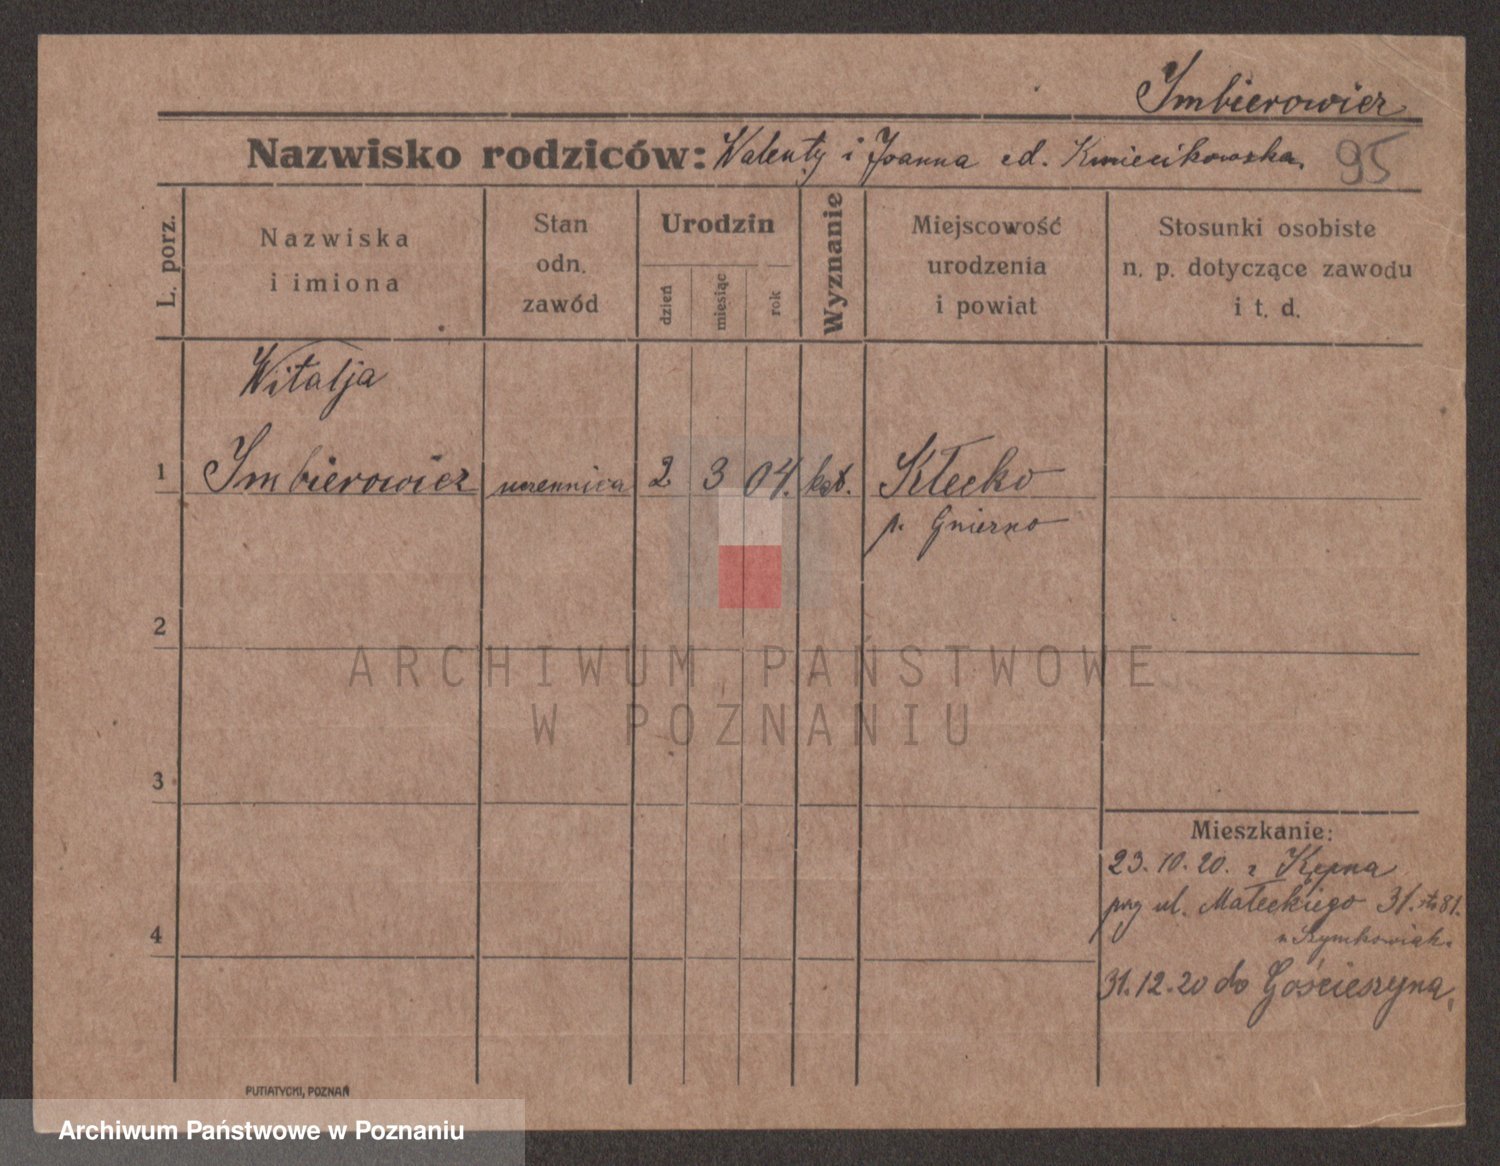 Imbierowicz
Nazwisko rodziców: Walenty i Joanna cd. Kmiecikowska. 95
L. porz.
Nazwiska
i imiona
Stan
odn.
zawód
Urodzin
dzień
miesiąc
rok
Wyznanie
Miejscowość
urodzenia
i powiat
Stosunki osobiste
n. p. dotyczące zawodu
i t. d.
Witalja
1 Imbierowicz uczennica 2 3 04. kat. Kłecko
p. Gniezno
2
3
4
Mieszkanie:
23.10.20. z Kępna
ul. Małeckiego 31.
u Szymkowiak.
31.12.20 do Gościeszyna,
PUTIATYCKI, POZNAŃ
ARCHIWUM PAŃSTWOWE
W POZNANIU
Archiwum Państwowe w Poznaniu